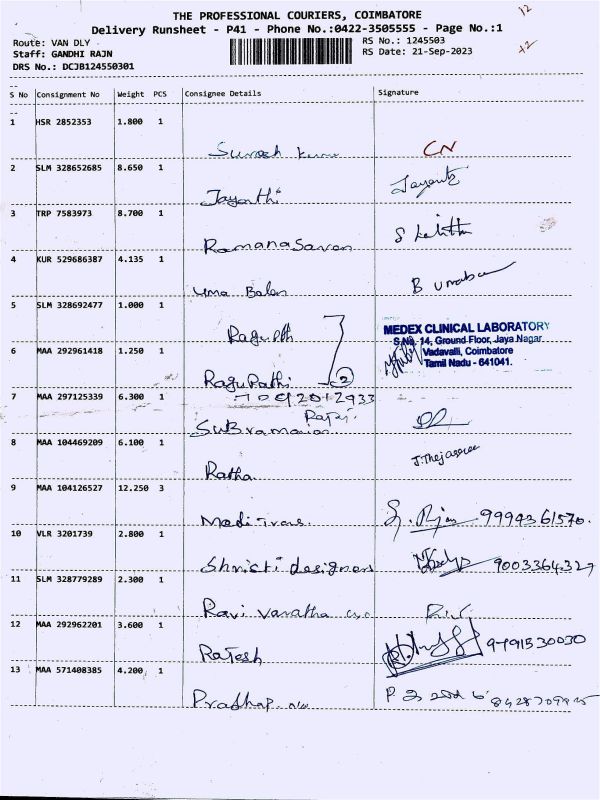 THE PROFESSIONAL COURIERS, COIMBATORE
12
Delivery Runsheet - P41 - Phone No.:0422-3505555 - Page No.:1
Route: VAN DLY
RS No.: 1245503
+2
Staff: GANDHI RAJN
RS Date: 21-Sep-2023
DRS No.: DCJB124550301
S No Consignment No Weight PCS Consignee Details Signature
1 HSR 2852353 1.800 1
Suresh kumar CN
2 SLM 328652685 8.650 1
Jayanthi
3 TRP 7583973 8.700 1
Ramana Saran S Lalitha
4 KUR 529686387 4.135 1
Uma Balan B Umabalan
5 SLM 328692477 1.000 1
Ragupathi
MEDEX CLINICAL LABORATORY
S.No. 14, Ground Floor, Jaya Nagar
6 MAA 292961418 1.250 1
Vadavalli, Coimbatore
Tamil Nadu - 641041.
Ragupathi 2
7 MAA 297125339 6.300 1
Subramanian
8 MAA 104469209 6.100 1
J.Thejasree
Ratha
9 MAA 104126527 12.250 3
Medi Trans. 9994361570.
10 VLR 3201739 2.800 1
Shristi designers 9003364327
11 SLM 328779289 2.300 1
Ravi Varatha
12 MAA 292962201 3.600 1
Rajesh 9791530030
13 MAA 571408385 4.200 1
Pradhap